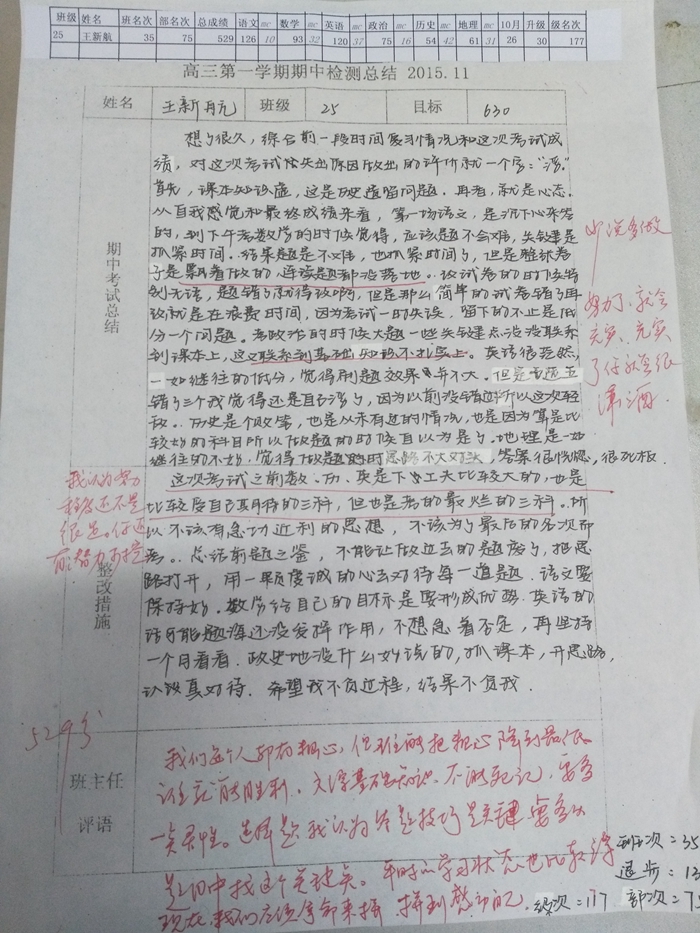 班级 姓名 班名次 部名次 总成绩 语文 mc 数学 mc 英语 mc 政治 mc 历史 mc 地理 mc 10月 升级 级名次
25 王新航 35 75 529 126 10 93 32 120 37 75 16 54 42 61 31 26 30 177
高三第一学期期中检测总结 2015.11
姓名 王新航 班级 25 目标 630
期中考试总结
想了很久,综合前一段时间复习情况和这次考试成
绩,对这次考试做出的评价就一个字:"浮"。
首先,课本知识虚,这是历史遗留问题。再者,就是心态。
从自我感觉和最终成绩来看,第一场语文,是沉下心来答
的,到下午考数学的时候觉得,应该题不会难,关键是
抓紧时间。结果题是不难,也抓紧时间了,但是整张卷
子是飘着做的,连读题都没落地。改试卷的时候特
别无语,题错了就得改啊,但是那么简单的试卷错了再
改就是在浪费时间,因为考试一时失误,留下的不止是低
分一个问题。考政治的时候大题一些关键点没没联系
到课本上,这又联系到基础知识不扎实上。英语很茫然,
一如继往的低分,觉得刷题效果并不大。但是
错了三个我觉得还是自己浮了,因为以前没错过所以这次轻
敌。历史是个败笔,也是从未有过的情况,也是因为算是比
较好的科目所以做题的时候自以为是了。地理是一如
继往的不好,觉得做题的时候思路不大对头,答案很恍惚,很死板。
少说多做
努力了,就会
充实,充实
了你就会很
潇洒。
整改措施
这次考试之前数、历、英是下功夫比较大的,也是
比较度自己期待的三科,但也是考的最烂的三科。所
以不该有急功近利的思想,不该为了最后的名次而
考。总结前题之鉴,不能让做过去的题废了,把思
路打开,用一颗虔诚的心去对待每一道题。语文要
保持好。数学给自己的目标是要形成优势。英语的
话可能题海还没发挥作用,不想急着否定,再坚持
一个月看看。政史地没什么好说的,抓课本,开思路,
认认真对待。希望我不负过程,结果不负我。
我认为努力
程度还不是
很足。你还
有潜力可挖
529分
班主任
评语
我们每个人都有粗心,但谁能把粗心降到最低
谁就能胜利。文综基础知识,不能死记,要多
一点灵性。选择题我认为答题技巧是关键,要多从
题目中找这个关键点。平时的学习状态也比较
现在我们应该拿命来搏,拼到感动自己。
班次:35
退步:13
级次:177 部次:75